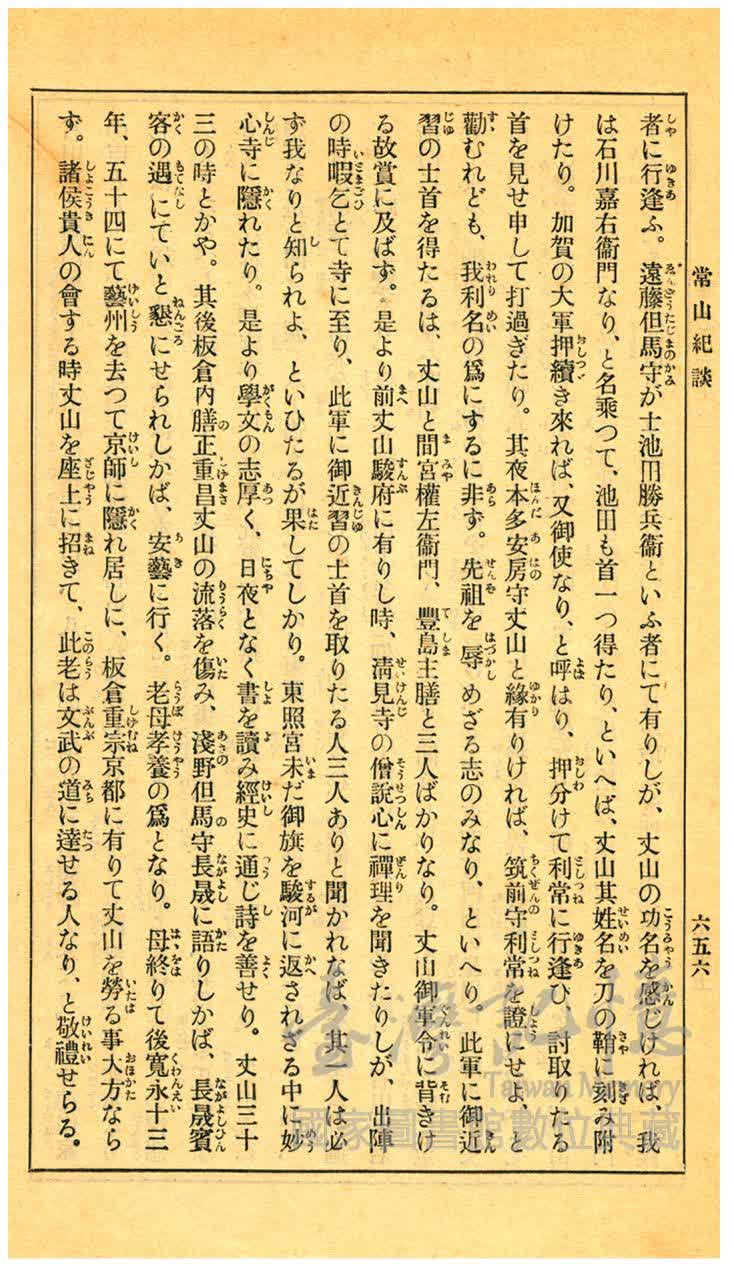 常山紀談
六五六
者に行逢ふ。遠藤但馬守が士池田勝兵衞といふ者にて有りしが、丈山の功名を感じければ、我
は石川嘉右衞門なり、と名乘つて、池田も首一つ得たり、といへば、丈山其姓名を刀の鞘に刻み附
けたり。加賀の大軍押續き來れば、又御使なり、と呼はり、押分けて利常に行逢ひ、討取りたる
首を見せ申して打過ぎたり。其夜本多安房守丈山と緣有りければ、筑前守利常を證にせよ、と
勸むれども、我利名の爲にするに非ず。先祖を辱めざる志のみなり、といへり。此軍に御近
習の士首を得たるは、丈山と間宮權左衞門、豐島主膳と三人ばかりなり。丈山御軍令に背きけ
る故賞に及ばず。是より前丈山駿府に有りし時、淸見寺の僧說心に禪理を聞きたりしが、出陣
の時暇乞とて寺に至り、此軍に御近習の士首を取りたる人三人ありと聞かれなば、其一人は必
ず我なりと知られよ、といひたるが果してしかり。東照宮未だ御旗を駿河に返されざる中に妙
心寺に隱れたり。是より學文の志厚く、日夜となく書を讀み經史に通じ詩を善せり。丈山三十
三の時とかや。其後板倉內膳正重昌丈山の流落を傷み、淺野但馬守長晟に語りしかば、長晟賓
客の遇にていと懇にせられしかば、安藝に行く。老母孝養の爲となり。母終りて後寬永十三
年、五十四にて藝州を去つて京師に隱れ居しに、板倉重宗京都に有りて丈山を勞る事大方なら
ず。諸侯貴人の會する時丈山を座上に招きて、此老は文武の道に達せる人なり、と敬禮せらる。
臺灣記憶
Taiwan Memory
國家圖書館數位典藏